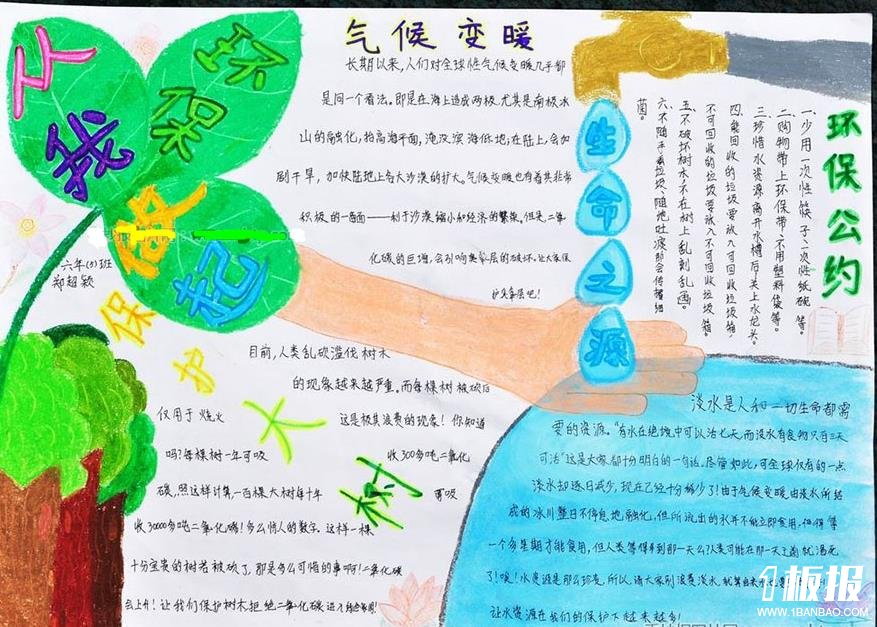 环保
从我
做起
六年(5)班
郑超颖
气候变暖
长期以来,人们对全球性气候变暖几乎都
是同一个看法。即是在海上造成两极尤其是南极冰
山的融化,抬高海平面,淹没滨海低地;在陆上,会加
剧干旱,加快陆地上各大沙漠的扩大。气候变暖也有着其非常
积极的一面——利于沙漠缩小和经济的繁荣。但是二氧
化碳的巨增,会影响臭氧层的破坏。让大家保
护臭氧层吧!
生命之源
环保公约
一少用一次性筷子、一次性纸碗等。
二、购物带上环保带、不用塑料袋等。
三、珍惜水资源离开水槽后关上水龙头。
四、能回收的垃圾要放入可回收垃圾箱,
不可回收的垃圾要放入不可回收垃圾箱。
五、不破坏树木,不在树上乱刻乱画。
六、不随手丢垃圾、随地吐痰那会传播细
菌。
保护大树
目前,人类乱砍滥伐树木
的现象越来越严重。而每棵树被砍后
仅用于烧火 这是极其浪费的现象!你知道
吗?每棵树一年可吸 收300多吨二氧化
碳,照这样计算,一百棵大树每十年 可吸
收30000多吨二氧化碳!多么惊人的数字。这样一棵
十分宝贵的树若被砍了,那是多么可惜的事啊!二氧化碳
会上升!让我们保护树木拒绝二氧化碳进入
淡水是人和一切生命都需
要的资源。"有水在绝境中可以活七天,而没水有食物只有三天
可活"这是大家都十分明白的一句话。尽管如此,可全球仅有的一点
淡水却逐日减少,现在已经十分稀少了!由于气候变暖由淡水所结
成的冰川整日不停息地融化,但所流出的水并不能立即食用,但得等
一个多星期才能食用,但人类等得来到那一天么?人类可能在那一天之前就渴死
了!唉!水资源是那么珍贵,所以,请大家别浪费淡水
让水资源在我们的保护下越来越多!
1板报
WWW.1BANBAO.COM